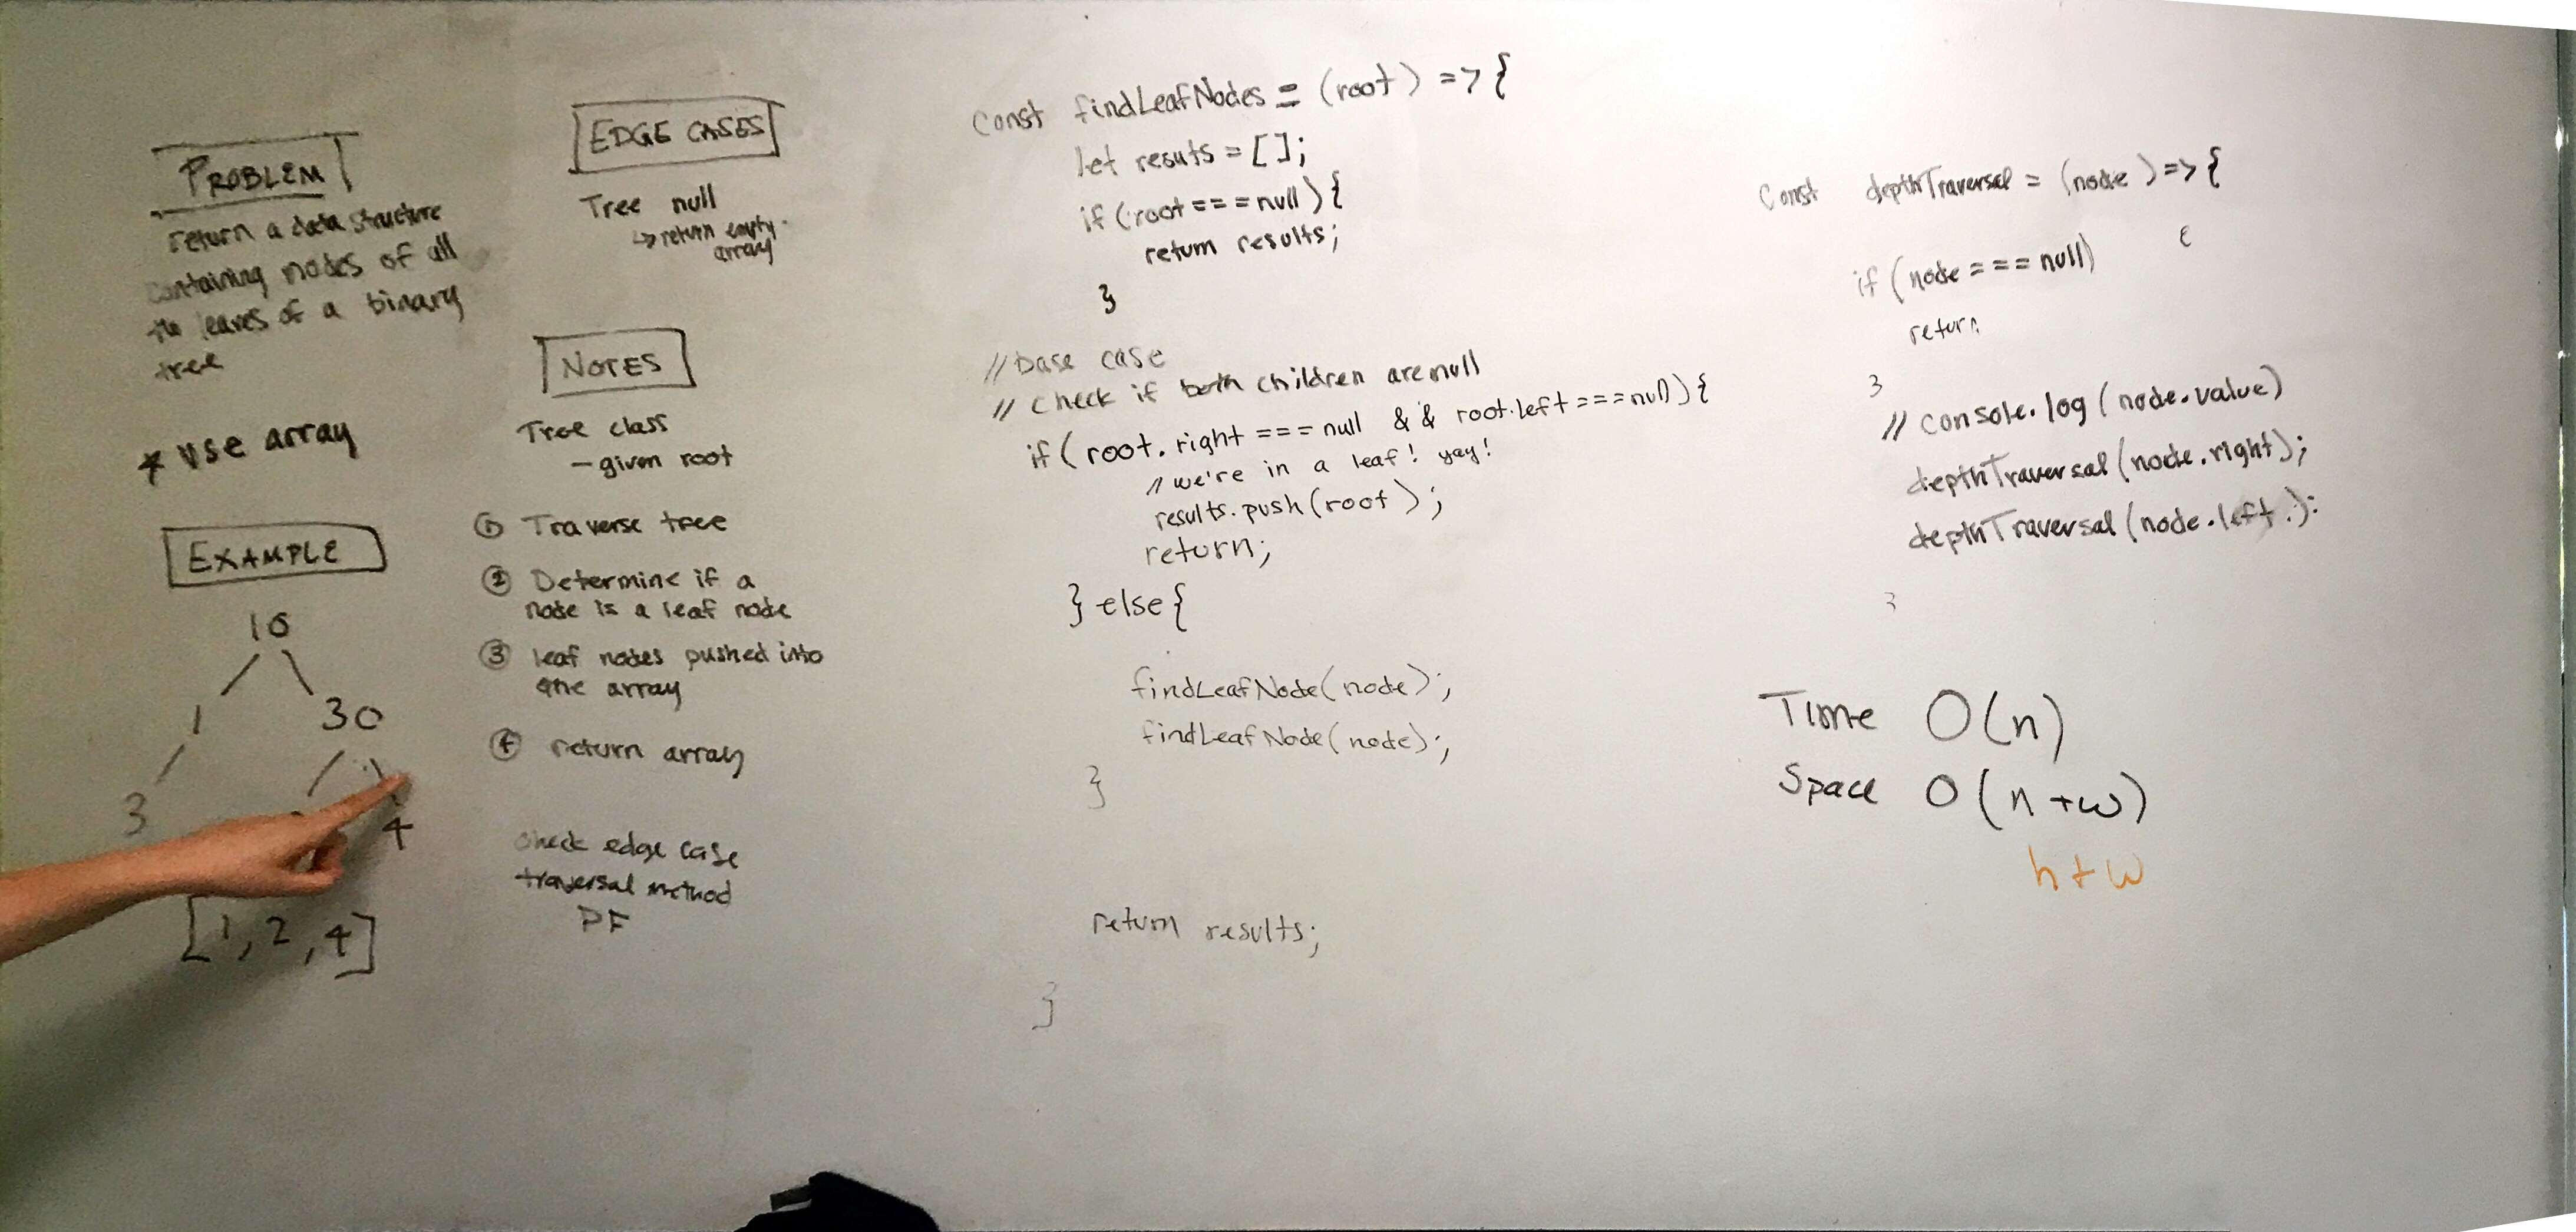 PROBLEM
return a data structure
containing nodes of all
the leaves of a binary
tree
* use array
EXAMPLE
10
1 30
3
4
[1, 2, 4]
EDGE CASES
Tree null
↳ return empty
array
NOTES
Tree class
- given root
① Traverse tree
② Determine if a
node is a leaf node
③ leaf nodes pushed into
one array
④ return array
check edge case
traversal method
DF
const findLeafNodes = (root) => {
let resuts = [];
if (root === null) {
return results;
}
// base case
// check if both children are null
if (root.right === null && root.left === null) {
// we're in a leaf! yay!
results.push(root);
return;
} else {
findLeafNode(node);
findLeafNode(node);
}
return results;
}
Const depthTraversal = (node) => {
if (node === null)
return
}
// console.log(node.value)
depthTraversal(node.right);
depthTraversal(node.left);
}
Time O(n)
Space O(n+w)
h+w